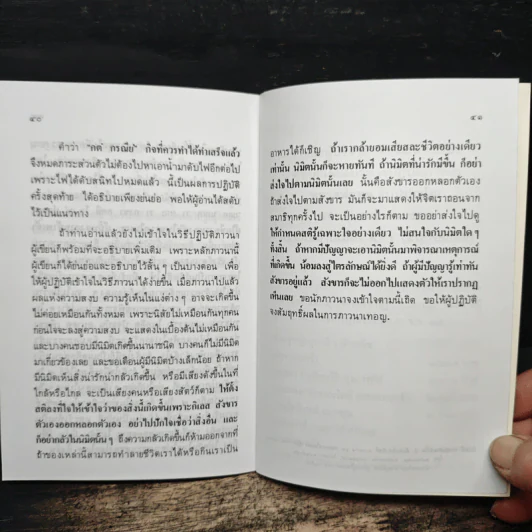 ๔๐
คำว่า "กตํ กรณียํ" กิจที่ควรทำได้ทำเสร็จแล้ว
จึงหมดภาระส่วนตัวไม่ต้องไปหาเอาน้ำมาดับไฟอีกต่อไป
เพราะไฟได้ดับสนิทไปหมดแล้ว นี้เป็นผลการปฏิบัติ
ครั้งสุดท้าย ได้อธิบายเพียงย่นย่อ พอให้ผู้อ่านได้สดับ
ไว้เป็นแนวทาง
ถ้าท่านอ่านแล้วยังไม่เข้าใจในวิธีปฏิบัติภาวนา
ผู้เขียนก็พร้อมที่จะอธิบายเพิ่มเติม เพราะหลักภาวนานี้
ผู้เขียนก็ได้ย่นย่อและอธิบายไว้สั้นๆ เป็นบางตอน เพื่อ
ให้ผู้ปฏิบัติเข้าใจในวิธีภาวนาได้ง่ายขึ้น เมื่อภาวนาไปแล้ว
ผลแห่งความสงบ ความรู้เห็นในแง่ต่างๆ อาจจะเกิดขึ้น
ไม่ค่อยเหมือนกันทั้งหมด เพราะนิสัยไม่เหมือนกันทุกคน
ก่อนใจจะลงสู่ความสงบ จะแสดงในเบื้องต้นไม่เหมือนกัน
และบางคนชอบมีนิมิตเกิดขึ้นนานาชนิด บางคนก็ไม่มีนิมิต
มาเกี่ยวข้องเลย และขอเตือนผู้มีนิมิตบ้างเล็กน้อย ถ้าหาก
มีนิมิตเห็นสิ่งน่ารักน่ากลัวเกิดขึ้น หรือมีเสียงดังขึ้นในที่
ใกล้หรือไกล จะเป็นเสียงคนหรือเสียงสัตว์ก็ตาม ให้ตั้ง
สติลงที่ใจให้เข้าใจว่าของสิ่งนี้เกิดขึ้นเพราะกิเลส สังขาร
ตัวเองออกหลอกตัวเอง อย่าไปปักใจเชื่อว่าสิ่งอื่น และ
ก็อย่ากลัวในนิมิตนั้นๆ ถึงความกลัวเกิดขึ้นก็ห้ามออกจากที่
ถ้าของเหล่านี้สามารถทำลายชีวิตเราได้หรือกินเราเป็น
๔๑
อาหารได้ก็เชิญ ถ้าเรากล้ายอมเสียสละชีวิตอย่างเดียว
เท่านั้น นิมิตนั้นก็จะหายทันที ถ้านิมิตที่น่ารักมีขึ้น ก็อย่า
ส่งใจไปตามนิมิตนั้นเลย นั้นคือสังขารออกหลอกตัวเอง
ถ้าส่งใจไปตามสังขาร มันก็จะมาแสดงให้จิตเราถอนจาก
สมาธิทุกครั้งไป จะเป็นอย่างไรก็ตาม ขออย่าส่งใจไปดู
ให้กำหนดสติรู้เฉพาะใจอย่างเดียว ไม่สนใจกับนิมิตใดๆ
ทั้งสิ้น ถ้าหากมีปัญญาจะเอานิมิตนั้นมาพิจารณาเหตุการณ์
ที่เกิดขึ้น น้อมลงสู่ไตรลักษณ์ได้ยิ่งดี ถ้าผู้มีปัญญารู้เท่าทัน
สังขารอยู่แล้ว สังขารก็จะไม่ออกไปแสดงตัวให้เราปรากฏ
เห็นเลย ขอนักภาวนาจงเข้าใจตามนี้เถิด ขอให้ผู้ปฏิบัติ
จงสัมฤทธิ์ผลในการภาวนาเทอญ.